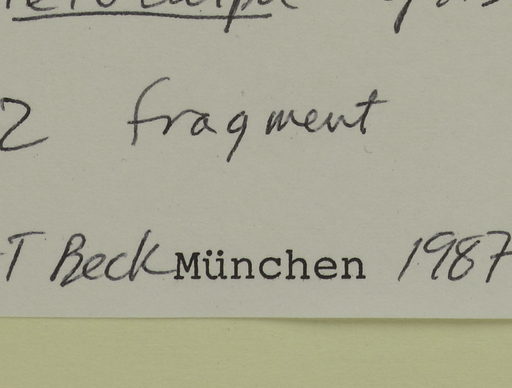 2 fragment
T Beck München 1987